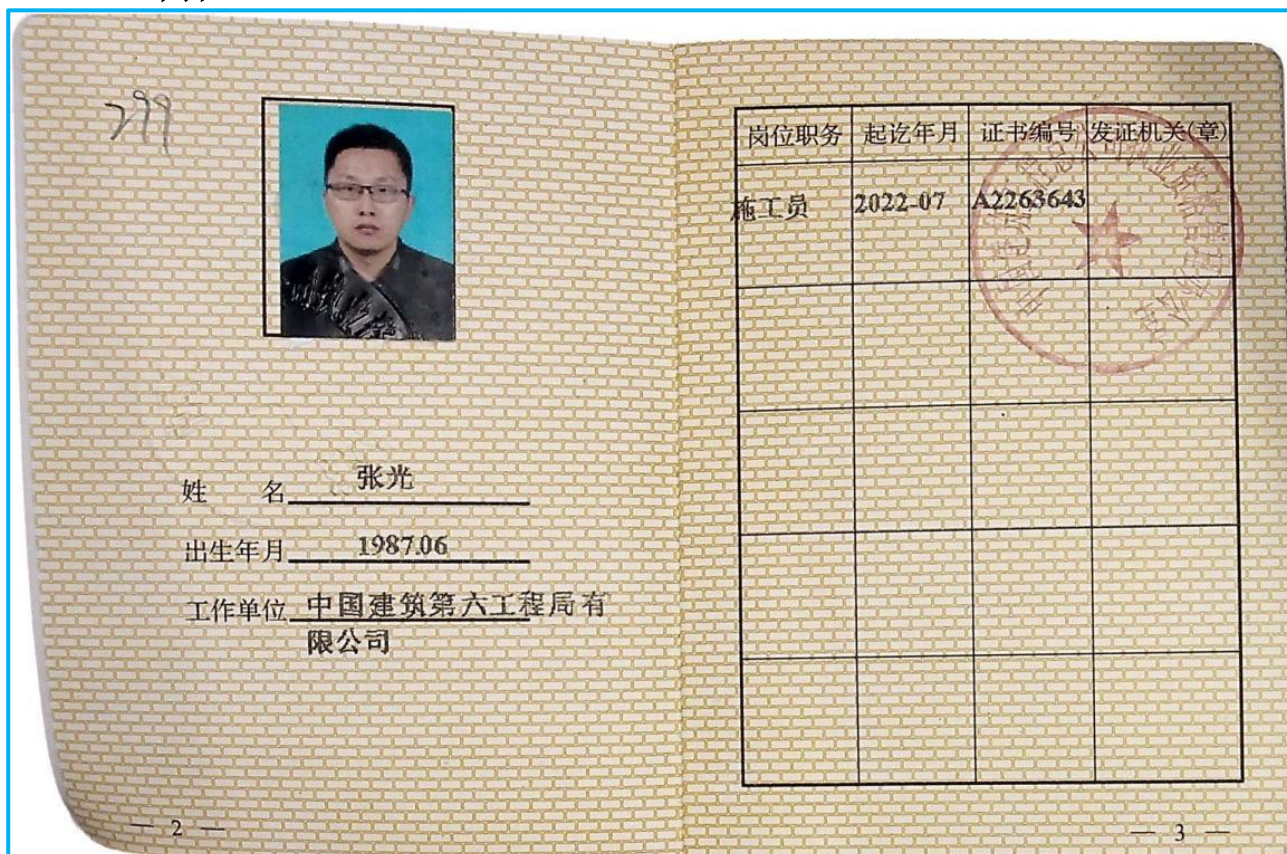 299
姓 名 张光
出生年月 1987.06
工作单位 中国建筑第六工程局有
限公司
— 2 —
岗位职务 起讫年月 证书编号 发证机关(章)
施工员 2022-07 A2263643
— 3 —